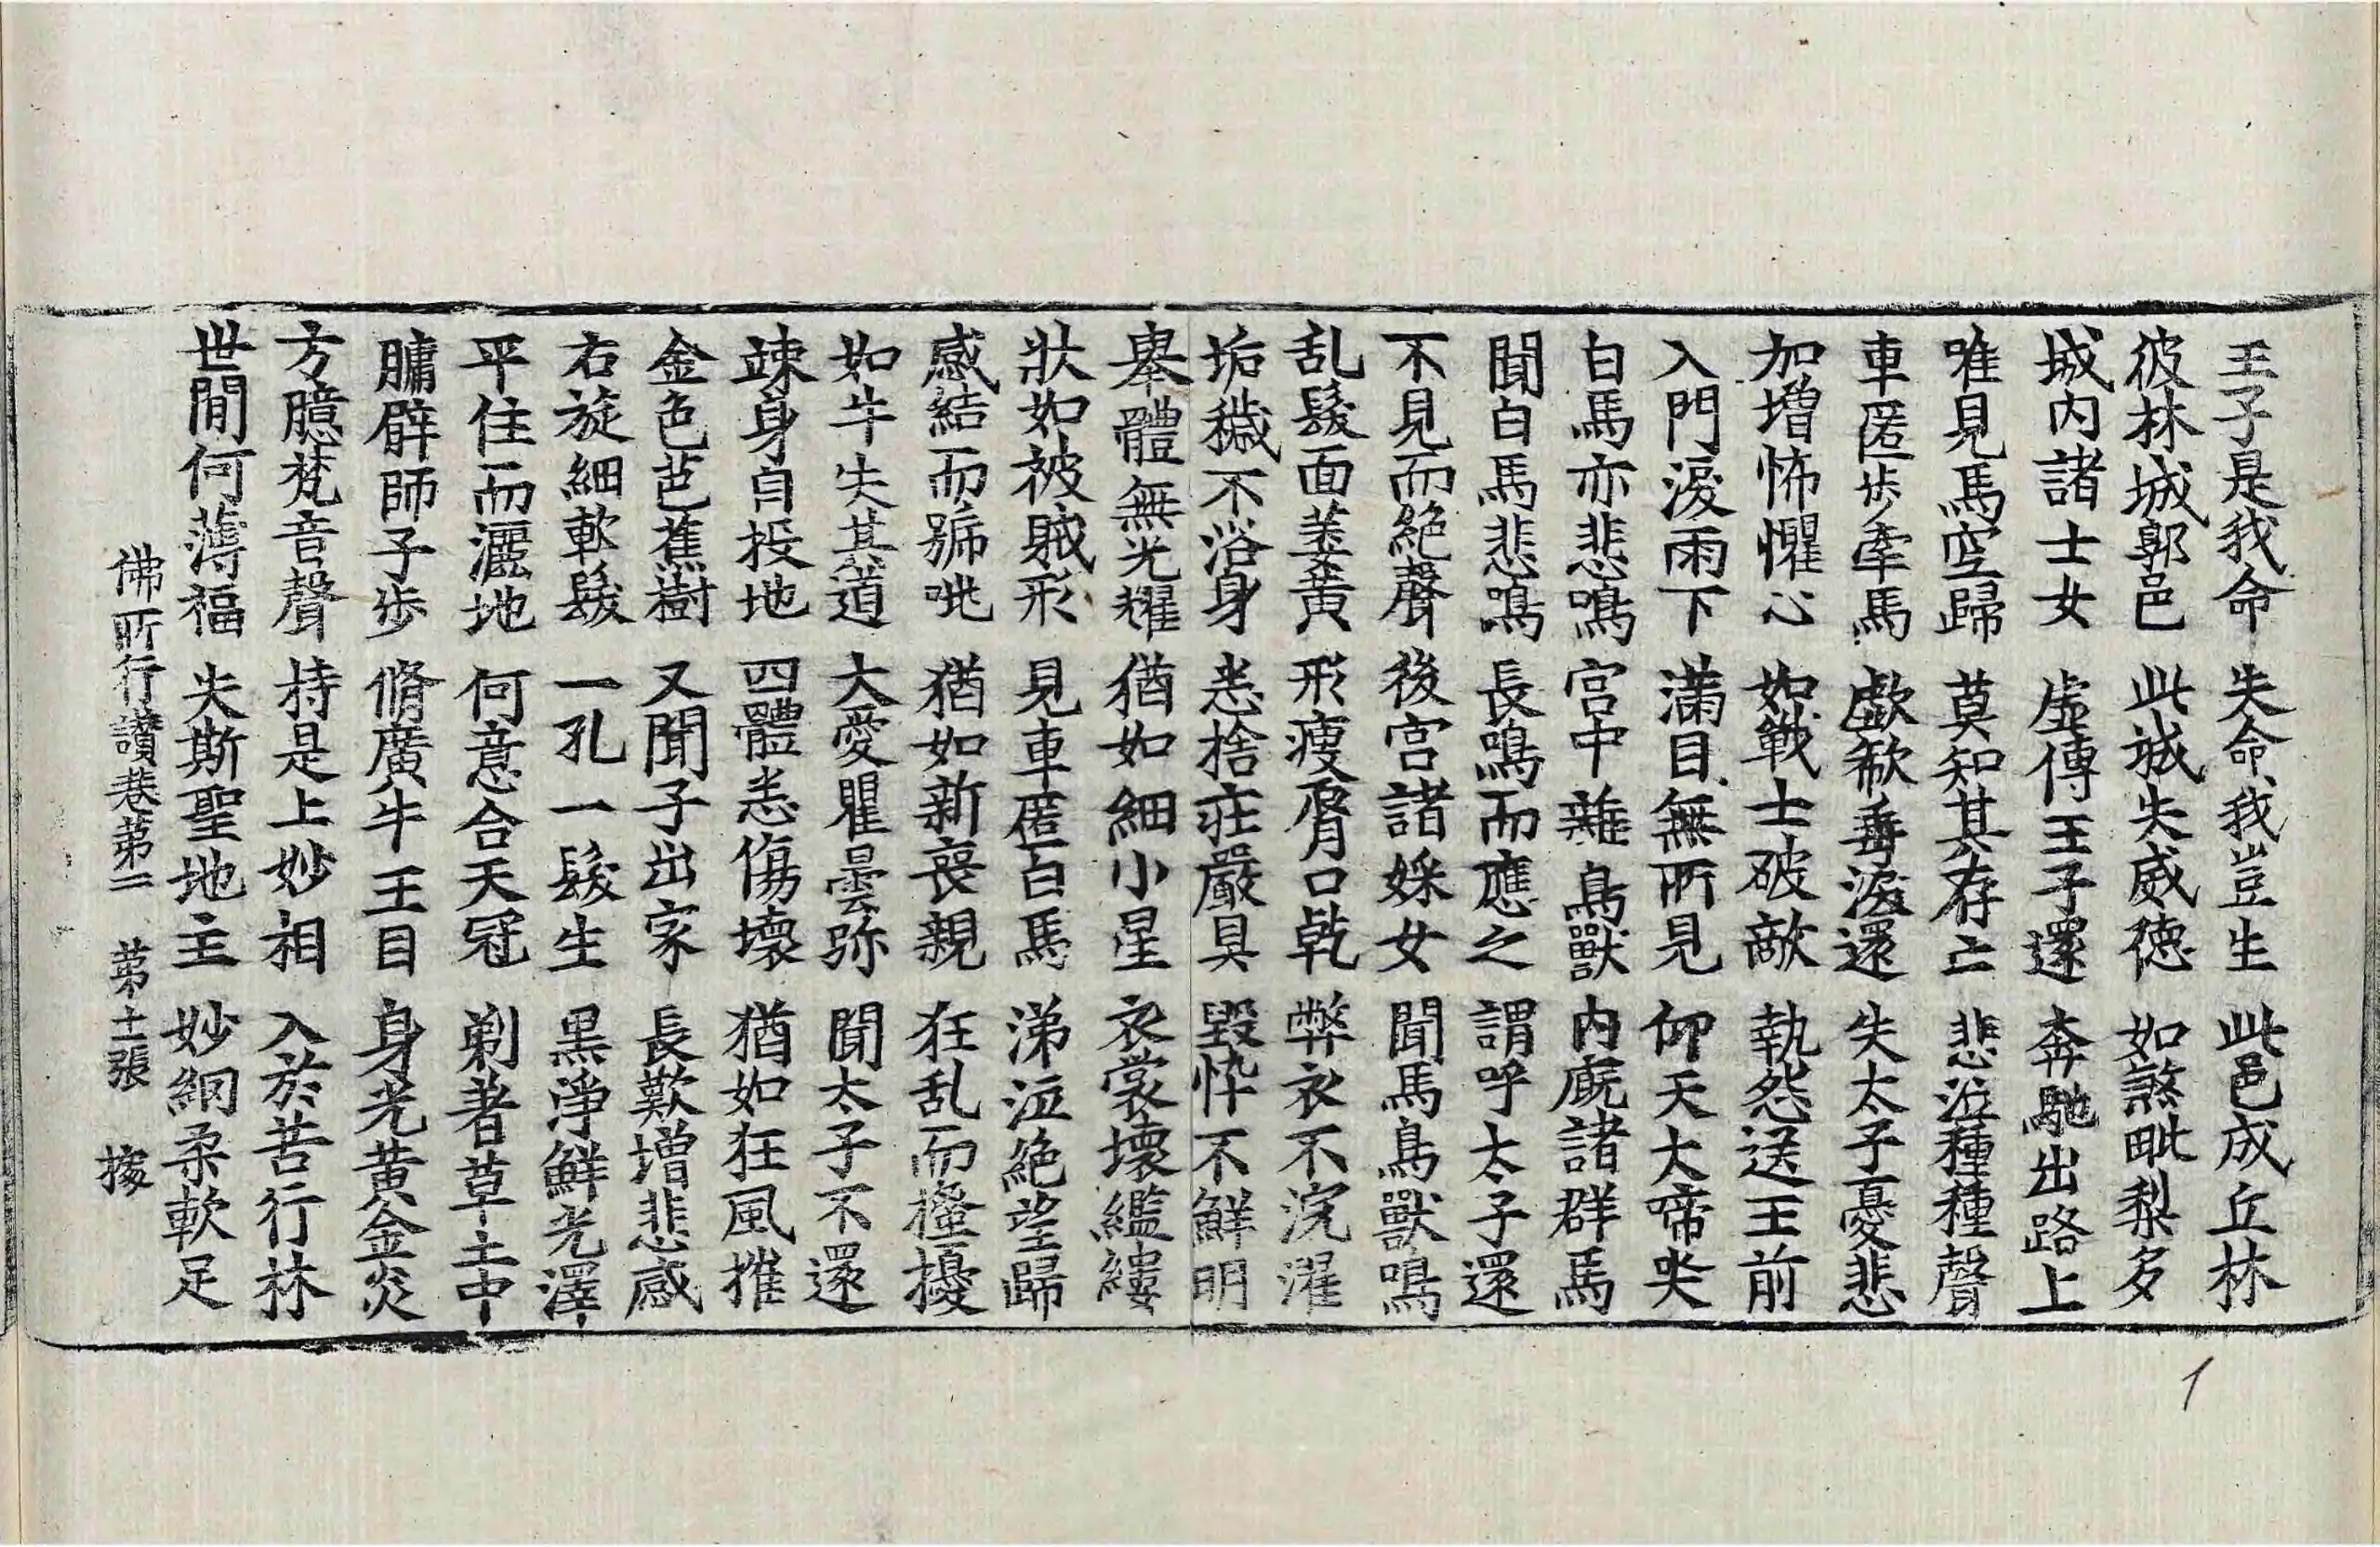 王子是我命 失命我豈生 此邑成丘林
彼林城郭邑 此城失威德 如煞毗梨多
城內諸士女 虛傳王子還 奔馳出路上
唯見馬空歸 莫知其存亡 悲泣種種聲
車匿步牽馬 歔欷垂淚還 失太子憂悲
加增怖懼心 如戰士破敵 執怨送王前
入門淚雨下 滿目無所見 仰天大啼哭
白馬亦悲鳴 宮中雜鳥獸 內廐諸群馬
聞白馬悲鳴 長鳴而應之 謂呼太子還
不見而絕聲 後宮諸婇女 聞馬鳥獸鳴
乱髮面萎黃 形瘦脣口乾 弊衣不浣濯
垢穢不浴身 悉捨莊嚴具 毀悴不鮮明
舉體無光耀 猶如細小星 衣裳壞繿縷
狀如被賊形 見車匿白馬 涕泣絕望歸
感結而號咷 猶如新喪親 狂乱而搔擾
如牛失其道 大愛瞿曇弥 聞太子不還
竦身自投地 四體悉傷壞 猶如狂風摧
金色芭蕉樹 又聞子出家 長歎增悲感
右旋細軟髮 一孔一髮生 黑淨鮮光澤
平住而灑地 何意合天冠 剃著草土中
𦟛臂師子步 脩廣牛王目 身光黃金炎
方臆梵音聲 持是上妙相 入於苦行林
世閒何薄福 失斯聖地主 妙網柔軟足
佛所行讚卷第二 第十二張 㨿
1